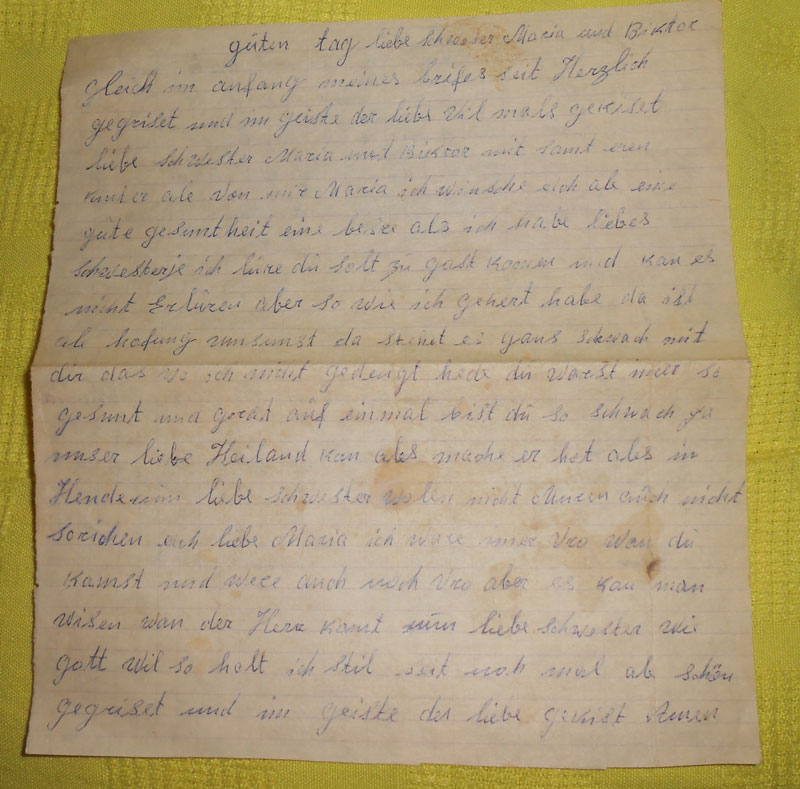 güten tag liebe schwester Maria und Biktor
gleich im anfang meines brifes seit Herzlich
gegriset und im geiste der liebe vil mals gekiset
liebe schwester Maria und Biktor mit samt eren
kinter ale von mir Maria ich winsche eich ale eine
güte gesuntheit eine besre als ich habe liebes
schwesterje ich lüre dü solt zü gast komen und kan es
nicht Erlüren aber so wie ich gehert habe da ist
ale hofung umsunst da stehet es gans schwach mit
dir das wo ich nicht gedengt hede du warst imer so
gesunt und gerat auf einmal bist dü so schwach ja
unser liebe Heiland kan ales mache er hat ales in
Hende nün liebe schwester wolen nicht Muren auch nicht
eich liebe Maria ich ware imer vro wan dü
kamst und were auch noch vro aber es kan man
wisen wan der Herr komt nün liebe schwester wie
gott wil so halt ich stil seit noh mal ale schön
gegriset und im geiste der liebe gekist Amen